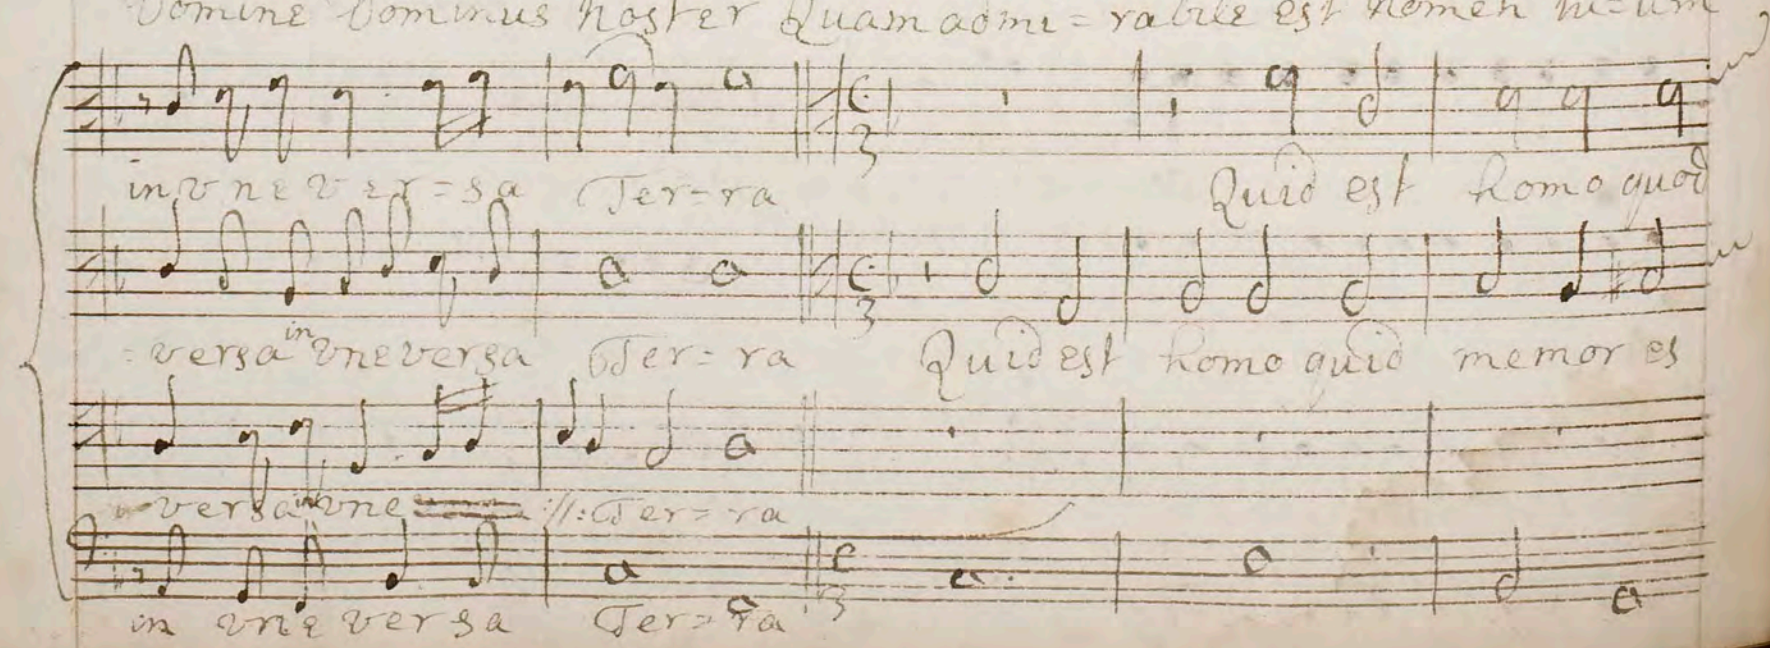 Domine Dominus noster Quam admi = rabile est nomen tu = um
in vnever = sa Ter = ra Quid est homo quod
= versa in vneversa Ter = ra Quid est homo quid memor es
versa in vne :||: Ter = ra
in vne versa Ter = ra